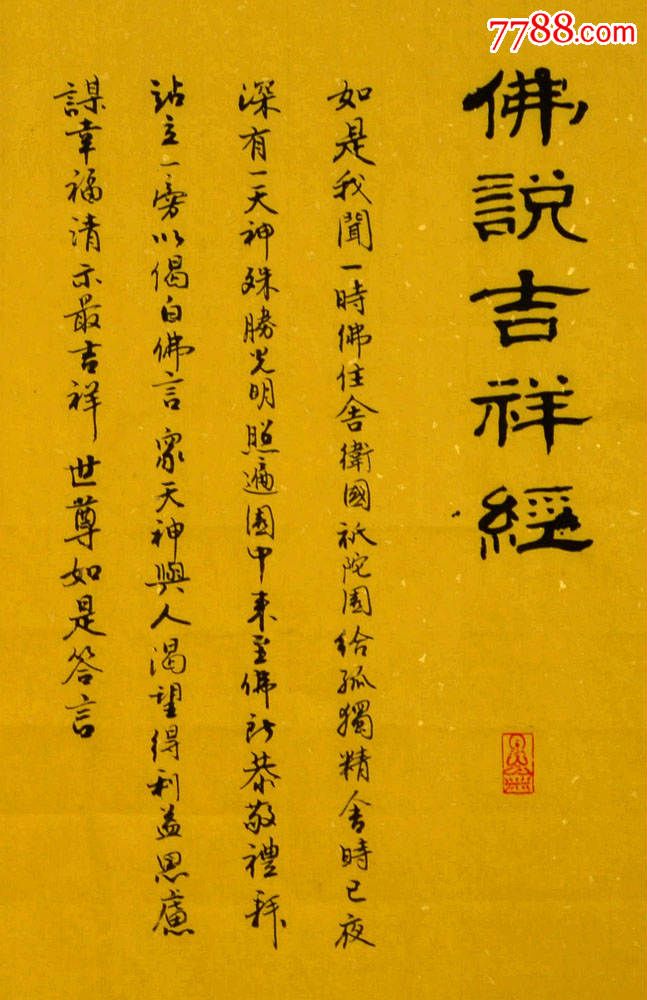 7788.com
佛說吉祥經
如是我聞一時佛住舍衛國祇陀園給孤獨精舍時已夜
深有一天神殊勝光明照遍園中来至佛所恭敬禮拜
站立一旁以偈白佛言眾天神與人渴望得利益思慮
謀幸福清示最吉祥世尊如是答言